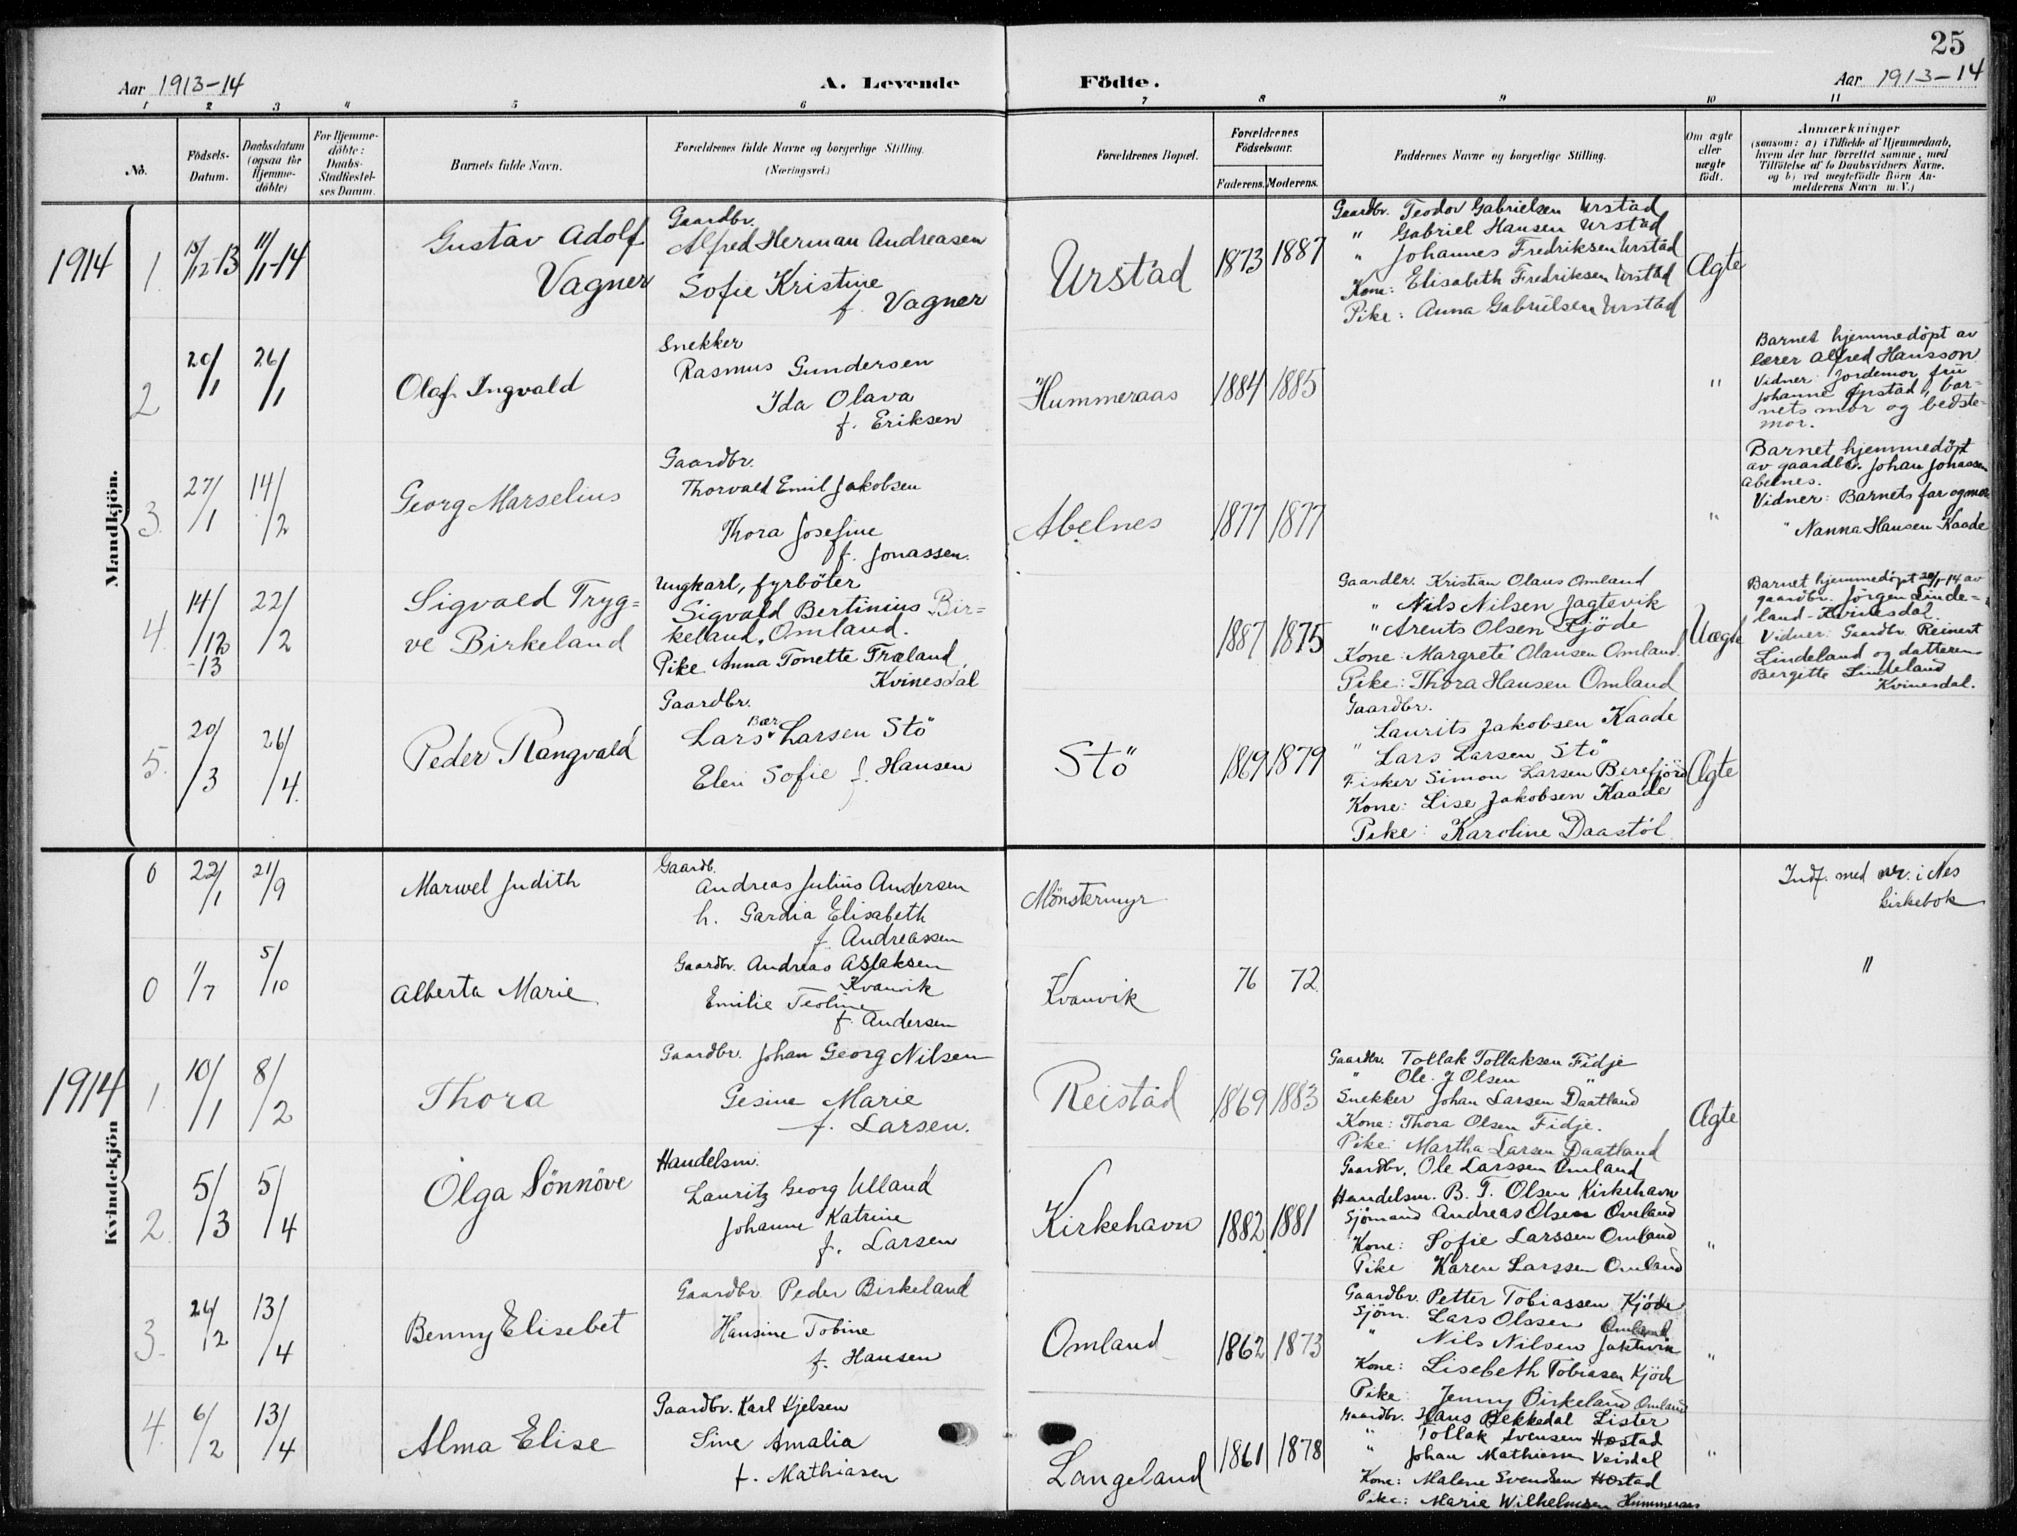 25
Aar 1913-14
A. Levende Födte.
Aar 1913-14
1 2 3 4 5 6 7 8 9 10 11
No.
Födsels-Datum.
Daabsdatum (ogsaa for Hjemme-döbte)
For Hjemme-döbte: Daabs-Stadfestel-ses Datum.
Barnets fulde Navn.
Forældrenes fulde Navne og borgerlige Stilling.
(Næringsvei.)
Forældrenes Bopæl.
Forældrenes Födselsaar.
Faderens. Moderens.
Faddernes Navne og borgerlige Stilling.
Om ægte eller uægte födt.
Anmærkninger
(saasom: a) i Tilfælde af Hjemmedaab,
hvem der har forrettet samme, med
Tilföielse af to Daabsvidners Navne.
og b) ved uegtefödte Börn An-
melderens Navn m. V.)
Mandkjön.
1914
1. 15/12-13 11/1-14
Gustav Adolf
Vagner
Gaardbr.
Alfred Herman Andreasen
Sofie Kristine
f. Vagner
Urstad
1873 1887
Gaardbr. Teodor Gabrielsen Urstad
" Gabriel Hansen Urstad
" Johannes Fredriksen Urstad
Kone: Elisabeth Fredriksen Urstad
Pike: Anna Gabrielsen Urstad
Ægte
2 20/1 26/1
Olaf Ingvald
Snekker
Rasmus Gundersen
Ida Olava
f. Eriksen
Hummeraas
1884 1885
"
Barnet hjemmedøpt av
lærer Alfred Hansson
Vidner: Jordemor fru
Johanne Gyrstad, bar-
nets mor og bedste-
mor.
3. 27/1 14/2
Georg Marselius
Gaardbr.
Thorvald Emil Jakobsen
Thora Josefine
f. Jonassen.
Abelnes
1877 1877
"
Barnet hjemmedöpt
av gaardbr. Johan Jonassen
Abelnes.
Vidner: Barnets far og mor
" Nanna Hansen Kaade
4. 14/12-13 22/2
Sigvald Tryg=
ve Birkeland
Ungkarl, fyrböter
Sigvald Bertinius Bir=
keland, Omland.
Pike Anna Tonette Træland,
Kvinesdal
1887 1875
Gaardbr. Kristian Olaus Omland
" Nils Nilsen Jagtevik
" Arents Olsen Kjöde
Kone: Margrete Olausen Omland.
Pike: Thora Hansen Omland
Uægte
Barnet hjemmedøpt 20/1-14 av
gaardbr. Jörgen Linde=
land - Kvinesdal.
Vidner: Gaardbr. Reinert
Lindeland og datteren
Bergitte Lindeland
Kvinesdal.
5. 20/3 26/4
Peder Rangvald
Gaardbr.
Bær
Lars Larsen Stö
Elen Sofie f. Hansen
Stö
1869 1879
Gaardbr.
Laurits Jakobsen Kaade
" Lars Larsen Stö
Fisker Simon Larsen Berefjörd
Kone: Lise Jakobsen Kaade
Pike: Karoline Daastöl
Ægte
Kvindekjön
0 22/1 21/9
Marwel Judith
Gaardb.
Andreas Julius Andersen
h. Gardia Elisabeth
f. Andreassen
Mønstermyr
Indf. med nr. i Nes
kirkebok
0 1/7 5/10
Alberta Marie
Gaardbr. Andreas Aslaksen
Kvanvik
Emilie Teoline
f. Andersen
Kvanvik
76 72
"
1914
1. 10/1 8/2
Thora
Gaardbr. Johan Georg Nilsen
Gesine Marie
f. Larsen.
Reistad
1869 1883
Gaardbr. Tollak Tollaksen Fidje
" Ole J Olsen "
Snekker Johan Larsen Daatland
Kone: Thora Olsen Fidje.
Pike: Martha Larsen Daatland
Ægte
2. 5/3 5/4
Olga Sönnöve
Handelsm.
Lauritz Georg Ulland
Johanne Katrine
f. Larsen
Kirkehavn
1882 1881
Gaardbr. Ole Larssen Omland
Handelsm. B. T. Olsen Kirkehavn
Sjömand Andreas Olsen Omland
Kone: Sofie Larssen Omland
Pike Karen Larssen Omland
"
3. 24/2 13/4
Benny Elisebet
Gaardbr Peder Birkeland
Hansine Tobine
f. Hansen
Omland
1862 1873
Gaardbr. Petter Tobiassen Kjöde
Sjöm. Lars Olssen Omland
" Nils Nilsen Jaktvik
Kone: Lisebeth Tobiasen Kjöde
Pike: Jenny Birkeland Omland
"
4. 6/2 13/4
Alma Elise
Gaardbr. Karl Kjelsen
Sine Amalia
f. Mathiasen
Langeland
1861 1878
Gaardbr. Hans Bekkedal Lister
" Tollak Svensen Hostad
" Johan Mathiassen Veisdal
Kone: Malene Svendsen Hostad
Pike: Marie Wilhelmsen Hummeraas
"